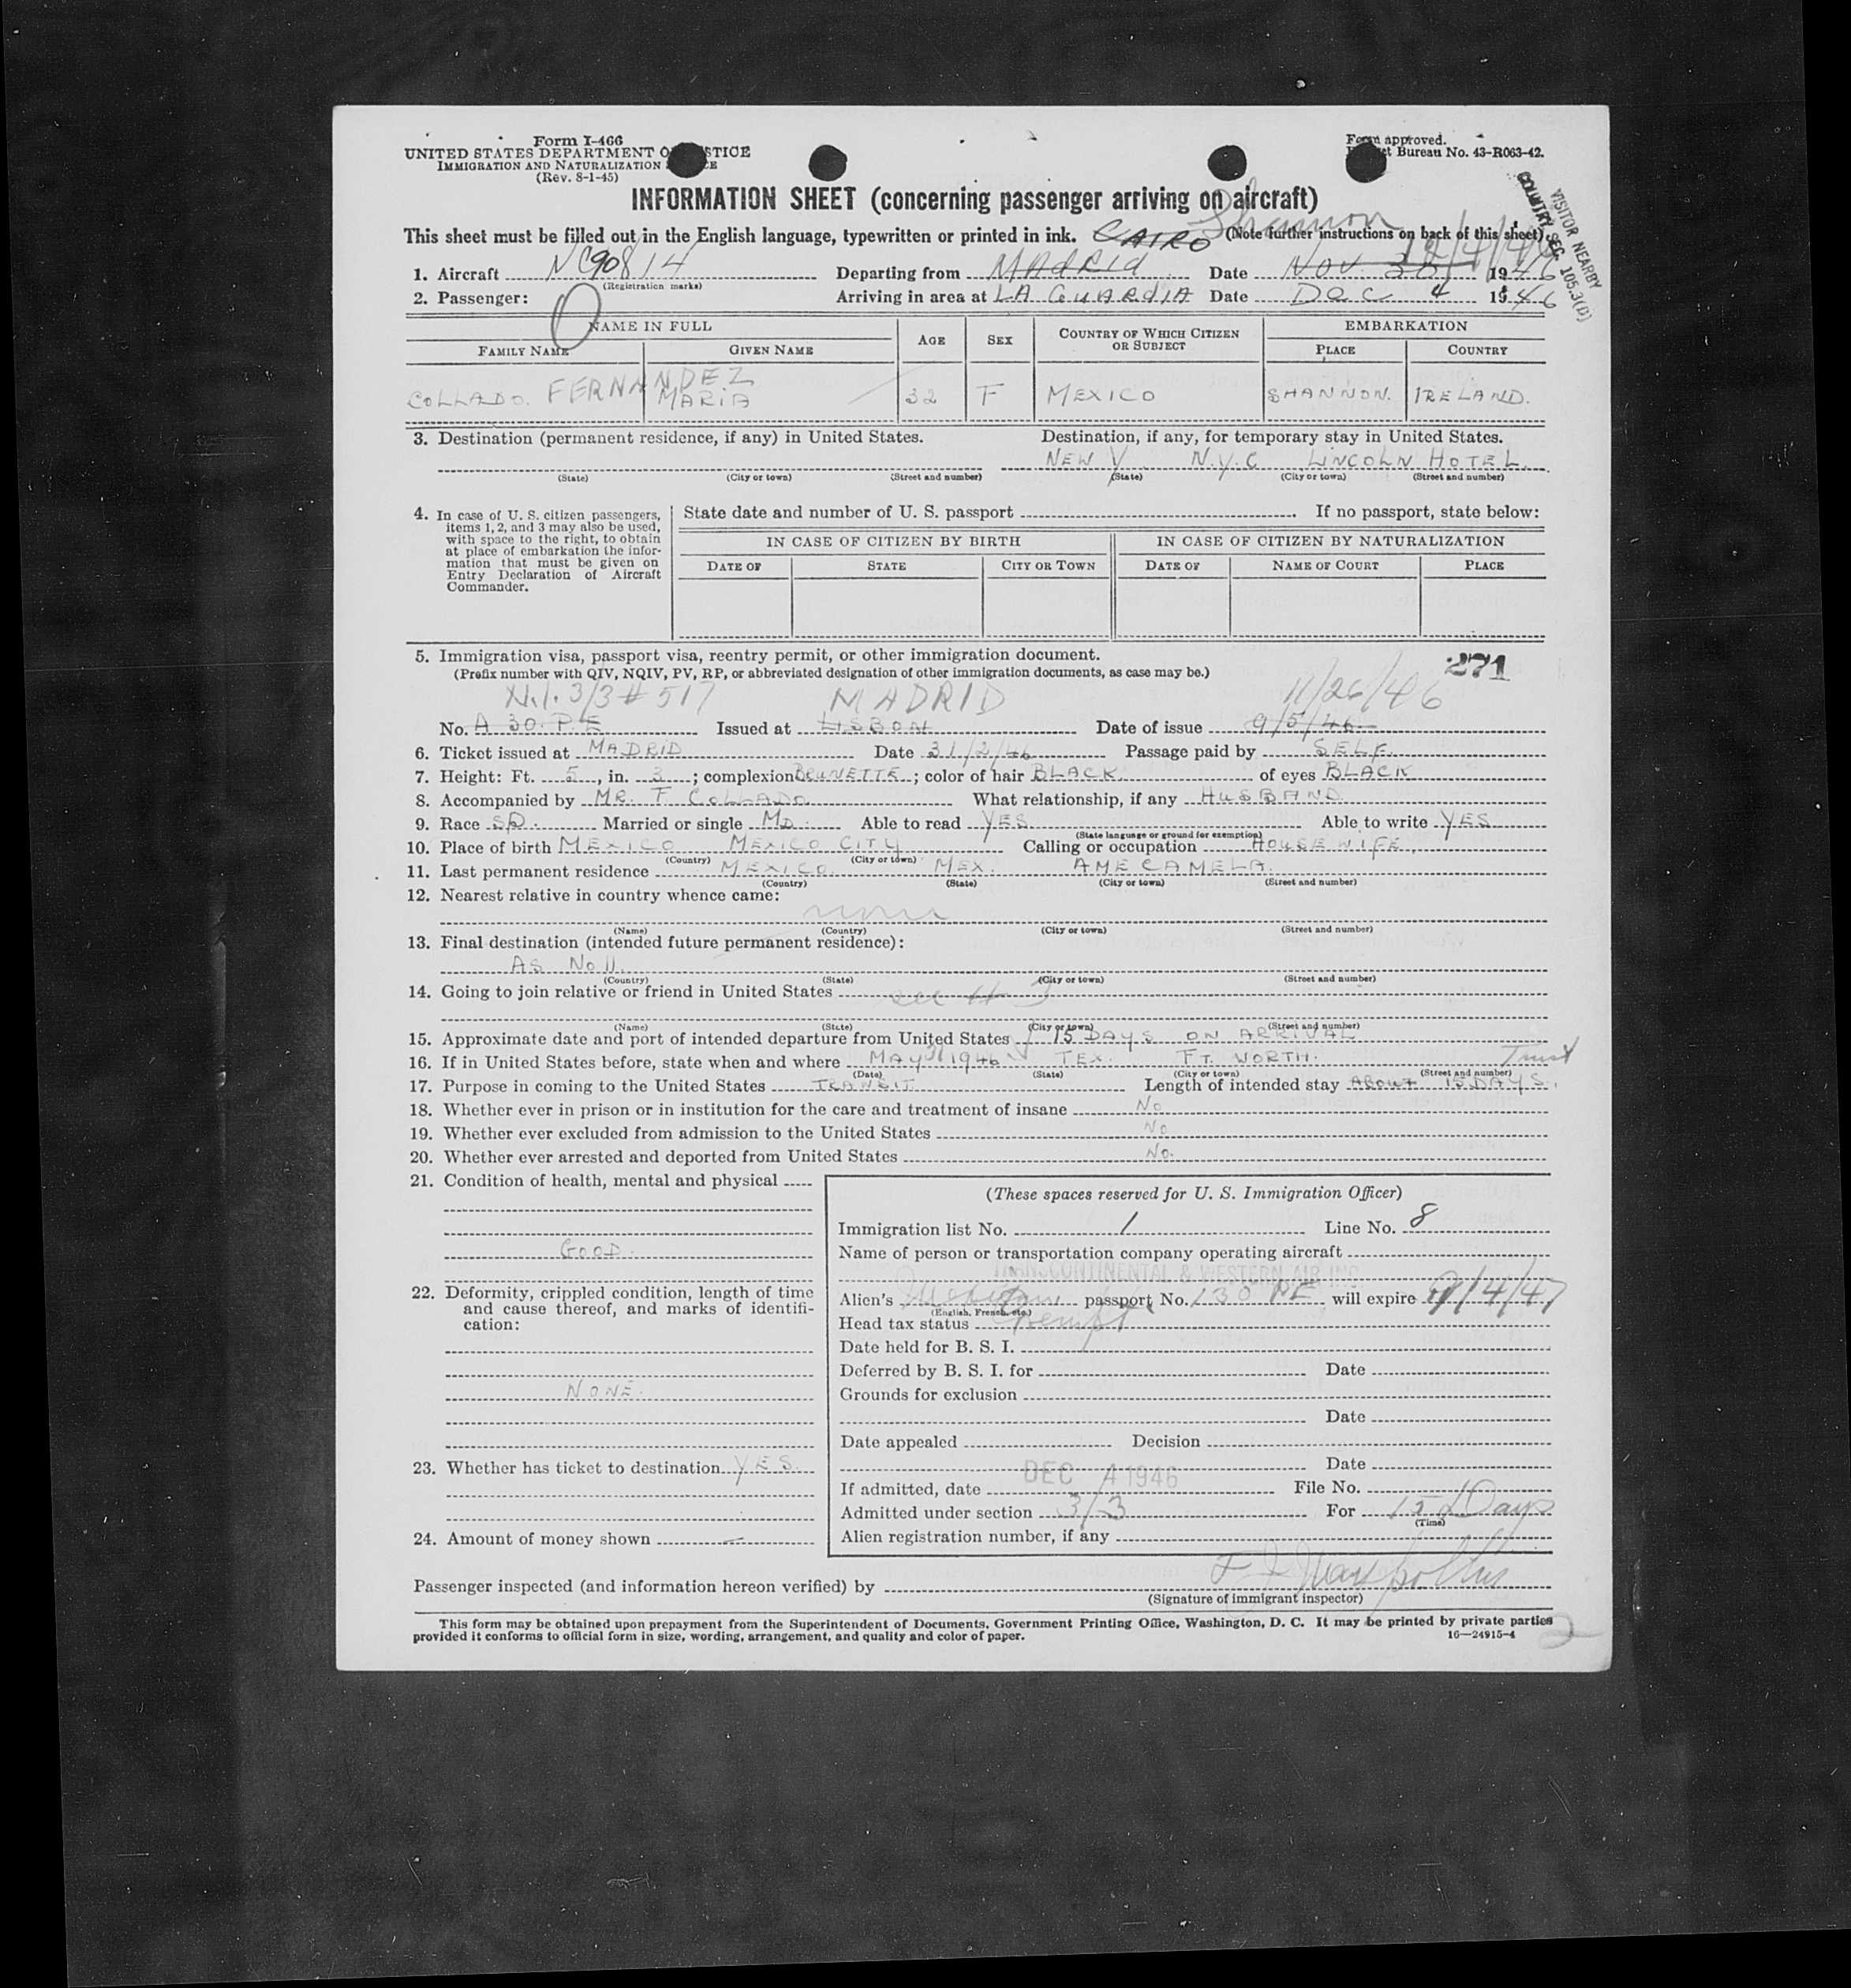 Form I-466
UNITED STATES DEPARTMENT OF JUSTICE
IMMIGRATION AND NATURALIZATION
(Rev. 8-1-45)
Form approved.
Bureau No. 43-R063-42.
COUNTRY SEC. 105.3(D)
VISITOR NEARBY
INFORMATION SHEET (concerning passenger arriving on aircraft)
Shannon
This sheet must be filled out in the English language, typewritten or printed in ink. CAIRO (Note further instructions on back of this sheet)
1. Aircraft NC90814 Departing from MAdRid Date Nov. 30 1946
(Registration marks)
2. Passenger: Arriving in area at LA GUARDIA Date DEC 4 1946
NAME IN FULL AGE SEX COUNTRY OF WHICH CITIZEN OR SUBJECT EMBARKATION
FAMILY NAME GIVEN NAME PLACE COUNTRY
COLLADO. FERNANDEZ MARIA 32 F MEXICO SHANNON. IRELAND.
3. Destination (permanent residence, if any) in United States. Destination, if any, for temporary stay in United States.
NEW Y N.Y.C LINCOLN HOTEL
(State) (City or town) (Street and number) (State) (City or town) (Street and number)
4. In case of U. S. citizen passengers, items 1, 2, and 3 may also be used, with space to the right, to obtain at place of embarkation the information that must be given on Entry Declaration of Aircraft Commander.
State date and number of U. S. passport If no passport, state below:
IN CASE OF CITIZEN BY BIRTH IN CASE OF CITIZEN BY NATURALIZATION
DATE OF STATE CITY OR TOWN DATE OF NAME OF COURT PLACE
5. Immigration visa, passport visa, reentry permit, or other immigration document.
271
(Prefix number with QIV, NQIV, PV, RP, or abbreviated designation of other immigration documents, as case may be.)
N.I. 3/3 # 517 MADRID 11/26/46
No. A 30. P.E Issued at LISBON Date of issue 9/5/46
6. Ticket issued at MADRID Date 31/2/46 Passage paid by SELF
7. Height: Ft. 5, in. 3; complexion BRUNETTE; color of hair BLACK of eyes BLACK
8. Accompanied by MR. F COLLADO What relationship, if any HUSBAND
9. Race SP. Married or single MD. Able to read YES Able to write YES
(State language or ground for exemption)
10. Place of birth MEXICO MEXICO CITY Calling or occupation HOUSEWIFE
(Country) (City or town)
11. Last permanent residence MEXICO. MEX. AMECAMELA.
(Country) (State) (City or town) (Street and number)
12. Nearest relative in country whence came:
(Name) (Country) (City or town) (Street and number)
13. Final destination (intended future permanent residence):
AS No 11.
(Country) (State) (City or town) (Street and number)
14. Going to join relative or friend in United States
(Name) (State) (City or town) (Street and number)
15. Approximate date and port of intended departure from United States 15 DAYS ON ARRIVAL
16. If in United States before, state when and where MAY 31 1946 TEX. FT. WORTH.
(Date) (State) (City or town) (Street and number)
17. Purpose in coming to the United States TRANSIT Length of intended stay ABOUT 15 DAYS.
18. Whether ever in prison or in institution for the care and treatment of insane No
19. Whether ever excluded from admission to the United States No
20. Whether ever arrested and deported from United States No.
21. Condition of health, mental and physical
GOOD.
22. Deformity, crippled condition, length of time and cause thereof, and marks of identification:
NONE.
23. Whether has ticket to destination YES.
24. Amount of money shown —
(These spaces reserved for U. S. Immigration Officer)
Immigration list No. 1 Line No. 8
Name of person or transportation company operating aircraft
TRANSCONTINENTAL & WESTERN AIR INC
Alien's passport No. 130 PE will expire 9/4/47
(English, French, etc.)
Head tax status exempt
Date held for B. S. I.
Deferred by B. S. I. for Date
Grounds for exclusion
Date
Date appealed Decision
Date
DEC 4 1946
If admitted, date File No.
Admitted under section 3/3 For 15 Days
(Time)
Alien registration number, if any
Passenger inspected (and information hereon verified) by
(Signature of immigrant inspector)
This form may be obtained upon prepayment from the Superintendent of Documents, Government Printing Office, Washington, D. C. It may be printed by private parties
provided it conforms to official form in size, wording, arrangement, and quality and color of paper. 16—24915-4
2